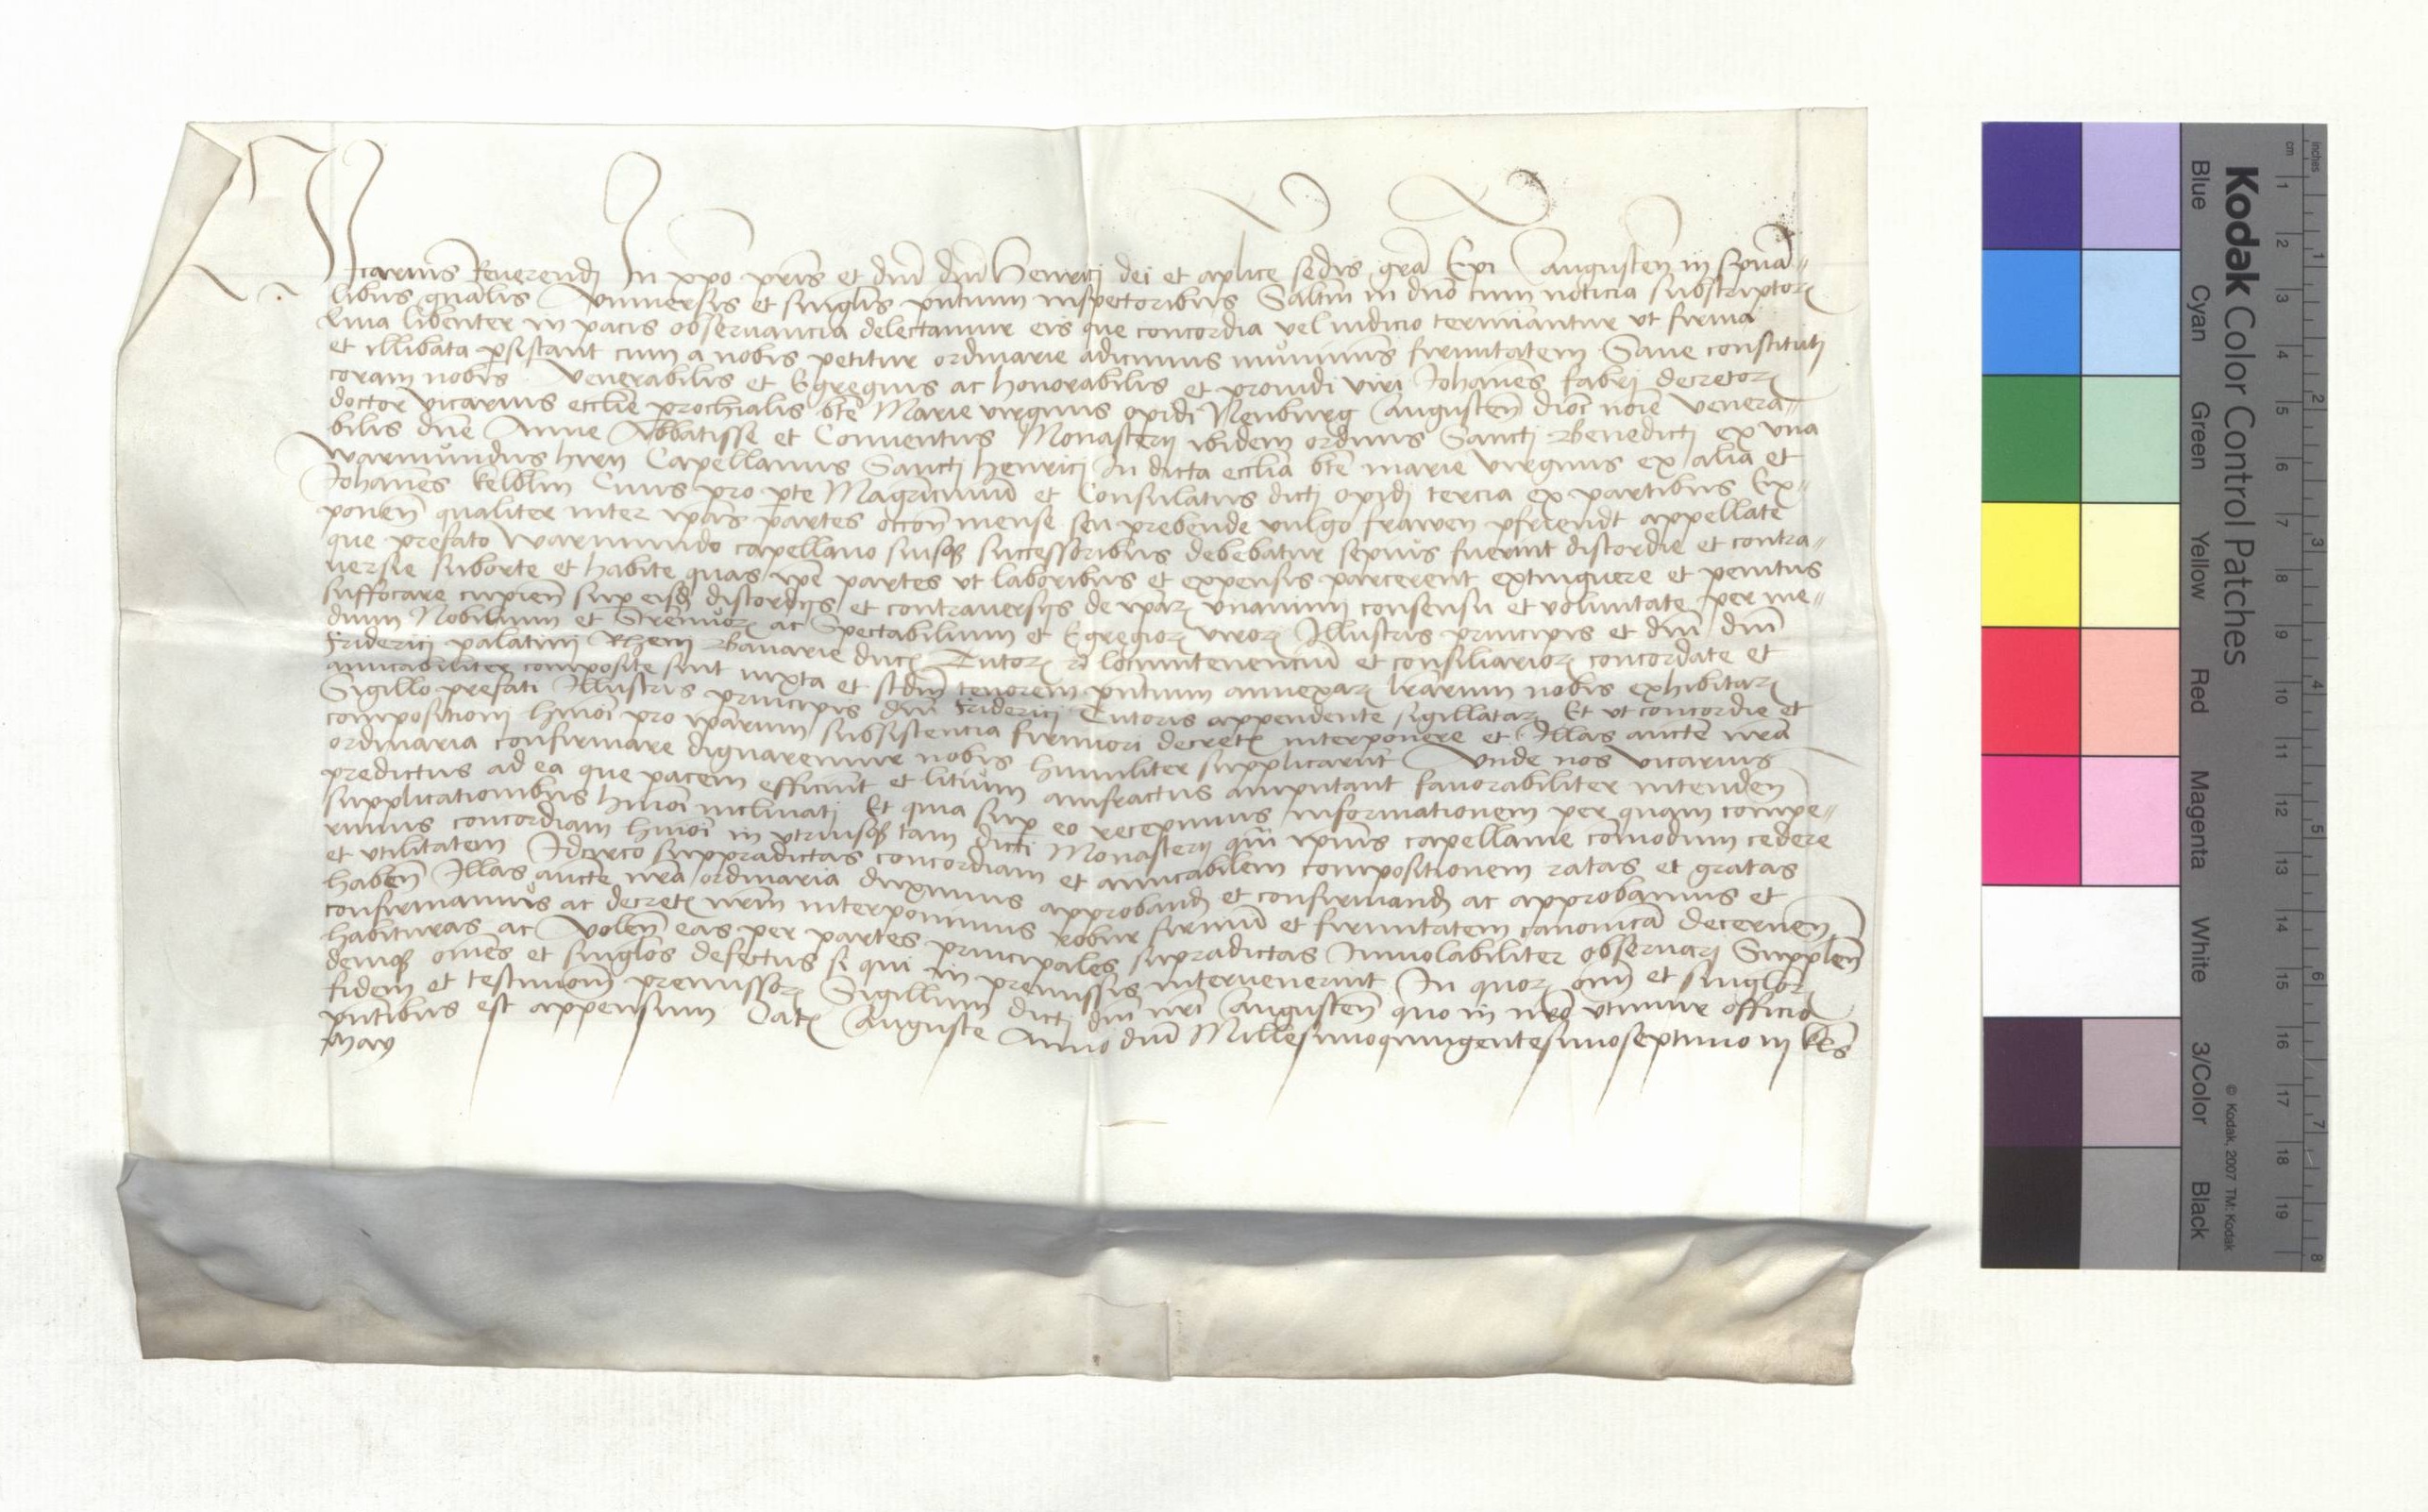 Vicarius Reverendj In xpo pris et dni dni Henricj dei et aplice sedis gra Epi Augusten in spua-
libus gnalis Vniuersis et singlis pntium inspectoribus Saltm in dno cum noticia subscriptor
Quia libenter in pacis obseruancia delectamur eis que concordia vel iudicio terminantur vt firma
et illibata psistant cum a nobis petitur ordinarie adicimus muniminis firmitatem Sane constitutj
coram nobis Venerabilis et Egregius ac honorabilis et prouidi viri Johanes fabrj decretor
doctor vicarius ecclie prochialis bte Marie virginis opidi Neuburg Augusten dioc noie venera-
bilis dne Anne Abbatisse et Conuentus Monasterij ibidem ordinis Sanctj Benedictj ex vna
warmundus hirn Capellanus Sanctj henricj In dicta ecclia bte marie virginis ex alia et
Johanes kelblin Ciuis pro pte Magrciuiu et Consulatus dictj opidj tercia ex partibus Ex-
ponen qualiter inter ipas partes occon mense seu prebende vulgo frawen pfriendt appellate
que prefato Warmundo capellano suisq successoribus debebatur sepius fuerint discordie et contra-
uersie suborte et habite quas ipe partes vt laboribus et expensis parcerent extinguere et penitus
suffocare cupien sup eisd discordijs et contrauersijs de ipar vnanimj consensu et voluntate per me-
dium Nobilium et Strenuor ac Spectabilium et Egregior viror Illustris principis et dni dni
Friderici palatini Rheni Bauarie duc Tutor et locumtenenciu et consiliarior concordate et
amicabiliter composite sint iuxta et scdm tenorem pntium annexar lrarum nobis exhibitar
Sigillo prefati Illustris principis dni Fridericj Tutoris appendente sigillatar Et vt concordie et
compositionj hmoi pro iparum subsistencia firmiori decret interponere et Illas aucte nra
ordinaria confirmare dignaremur nobis humiliter supplicarut Vnde nos vicarius
predictus ad ea que pacem efficiut et litium amfractus amputant fauorabiliter intenden
supplicationibus hmoi inclinati Et quia sup eo recepimus informationem per quam compe-
rimus concordiam hmoi in vtriusq tam dicti Monasterij qm ipius capellanie comodum cedere
et vtilitatem Idcirco suppradictas concordiam et amicabilem compositionem ratas et gratas
haben Illas aucte nra ordinaria duximus approband et confirmand ac approbamus et
confirmamus ac decret nrm interponimus robur firmu et firmitatem canonica decernen
habituras ac Volen eas per partes principales supradictas Inuiolabiliter obseruarj Supplen
demq omes et singlos defectus si qui in premissis interuenerint In quor oim et singlor
fidem et testimom premissor Sigillum dictj dni nri Augusten quo in nro vtimur officio
pntibus est appensum Dat Auguste Anno dni Millesimoquingentesimoseptimo iij kls
May
Kodak Color Control Patches
© Kodak, 2007 TM: Kodak
Blue Cyan Green Yellow Red Magenta White 3/Color Black
inches 1 2 3 4 5 6 7 8
cm 1 2 3 4 5 6 7 8 9 10 11 12 13 14 15 16 17 18 19